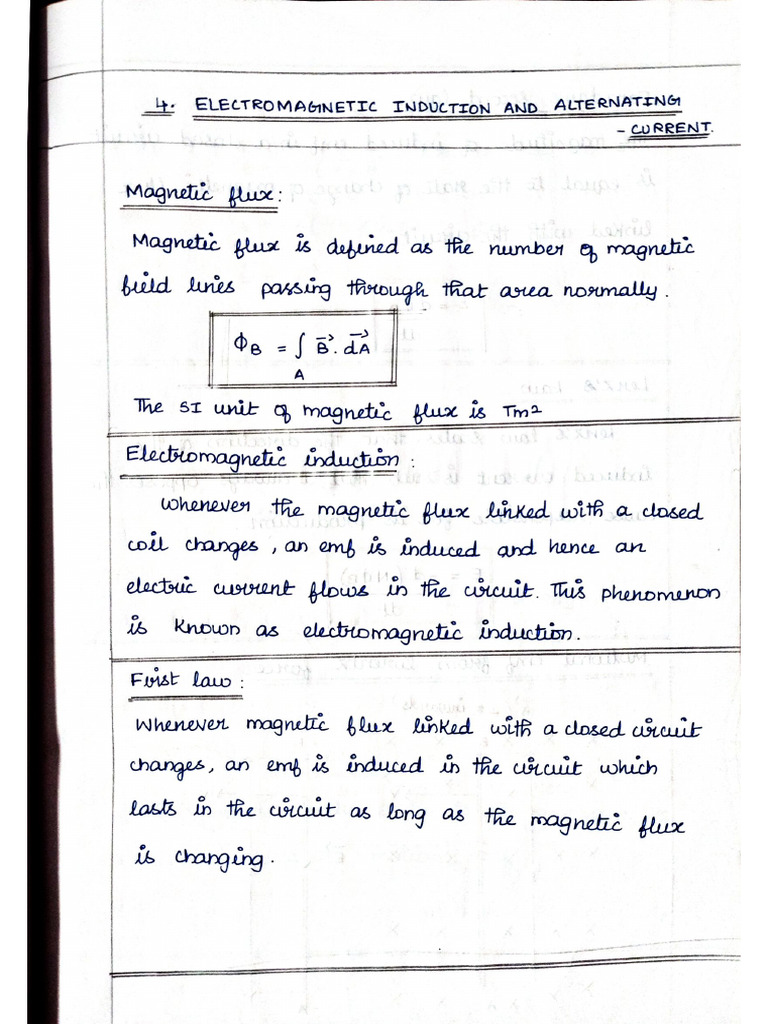 4. ELECTROMAGNETIC INDUCTION AND ALTERNATING
- CURRENT.
Magnetic flux:
Magnetic flux is defined as the number of magnetic
field lines passing through that area normally.
Φ_B = ∫_A B⃗. dA⃗
The SI unit of magnetic flux is Tm²
Electromagnetic induction:
Whenever the magnetic flux linked with a closed
coil changes, an emf is induced and hence an
electric current flows in the circuit. This phenomenon
is known as electromagnetic induction.
First law:
Whenever magnetic flux linked with a closed circuit
changes, an emf is induced in the circuit which
lasts in the circuit as long as the magnetic flux
is changing.